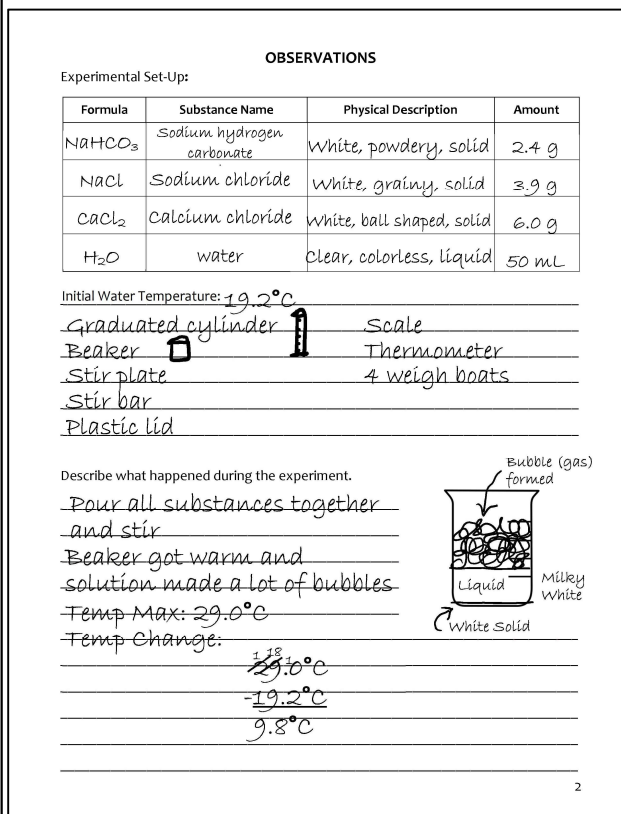 OBSERVATIONS
Experimental Set-Up:
Formula Substance Name Physical Description Amount
NaHCO₃ Sodium hydrogen carbonate White, powdery, solid 2.4 g
NaCl Sodium chloride White, grainy, solid 3.9 g
CaCl₂ Calcium chloride White, ball shaped, solid 6.0 g
H₂O water Clear, colorless, liquid 50 mL
Initial Water Temperature: 19.2°C
Graduated cylinder Scale
Beaker Thermometer
Stir plate 4 weigh boats
Stir bar
Plastic lid
Describe what happened during the experiment.
Pour all substances together
and stir
Beaker got warm and
solution made a lot of bubbles
Temp Max: 29.0°C
Temp Change:
1 18 1
29.0°C
-19.2°C
9.8°C
Bubble (gas)
formed
Liquid
Milky
White
White Solid
2